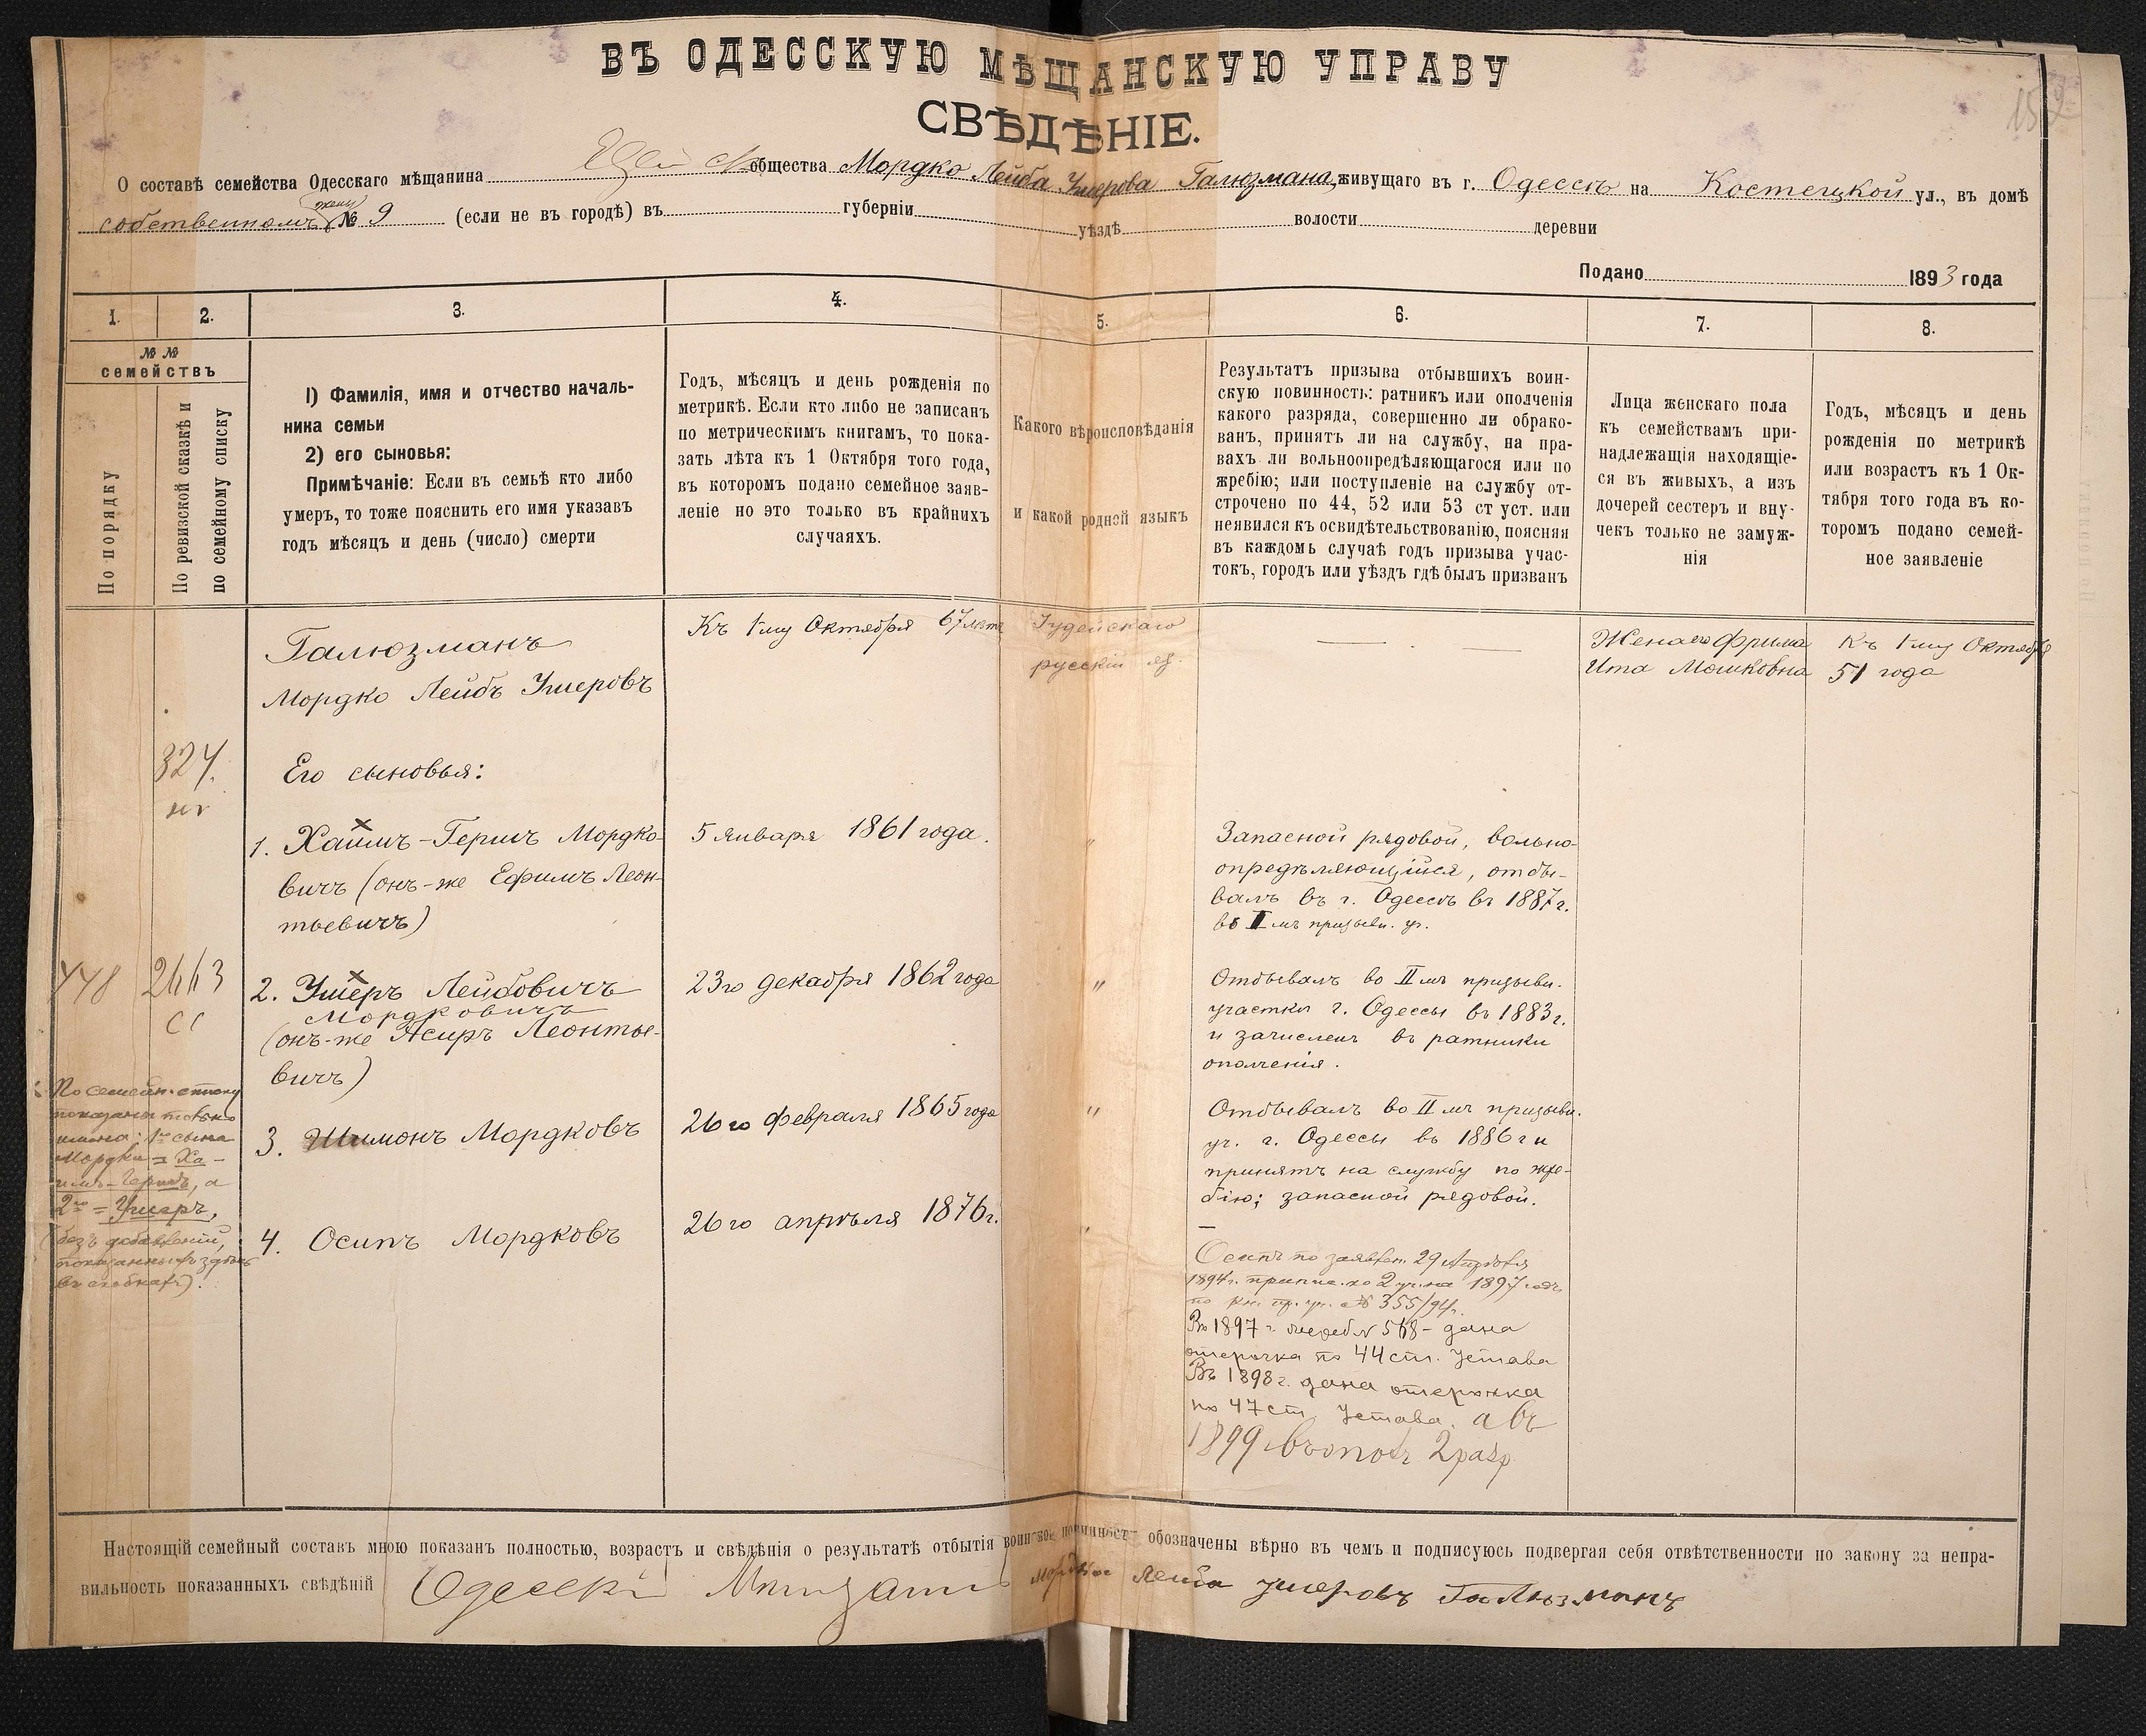 ВЪ ОДЕССКУЮ МѢЩАНСКУЮ УПРАВУ
СВѢДѢНІЕ.
О составѣ семейства Одесскаго мѣщанина общества Мордко Лейба Умерова Галюзмана, живущаго въ г. Одессѣ на Костецкой ул., въ домѣ
собственномъ жены № 9 (если не въ городѣ) въ губерніи уѣздѣ волости деревни
Подано 1893 года
1. 2. 3. 4. 5. 6. 7. 8.
№ №
семействъ
По порядку
По ревизской сказкѣ и
по семейному списку
1) Фамилія, имя и отчество началь-
ника семьи
2) его сыновья:
Примѣчаніе: Если въ семьѣ кто либо
умеръ, то тоже пояснить его имя указавъ
годъ мѣсяцъ и день (число) смерти
Годъ, мѣсяцъ и день рожденія по
метрикѣ. Если кто либо не записанъ
по метрическимъ книгамъ, то пока-
зать лѣта къ 1 Октября того года,
въ которомъ подано семейное заяв-
леніе но это только въ крайнихъ
случаяхъ.
Какого вѣроисповѣданія
и какой родной языкъ
Результатъ призыва отбывшихъ воин-
скую повинность: ратникъ или ополченія
какого разряда, совершенно ли обрако-
ванъ, принятъ ли на службу, на пра-
вахъ ли вольноопредѣляющагося или по
жребію; или поступленіе на службу от-
строчено по 44, 52 или 53 ст уст. или
неявился къ освидѣтельствованію, поясняя
въ каждомъ случаѣ годъ призыва учас-
токъ, городъ или уѣздъ гдѣ былъ призванъ
Лица женскаго пола
къ семействамъ при-
надлежащія находящіе-
ся въ живыхъ, а изъ
дочерей сестеръ и вну-
чекъ только не замуж-
нія
Годъ, мѣсяцъ и день
рожденія по метрикѣ
или возрастъ къ 1 Ок-
тября того года въ ко-
торомъ подано семей-
ное заявленіе
Галюзманъ
Мордко Лейбъ Умеровъ
Къ 1му Октября 67 лѣтъ
Іудейскаго
русскій яз.
Жена его Фрима
Ита Мошковна
Къ 1му Октября
51 года
324.
Его сыновья:
1. Хаимъ-Гершъ Мордко-
вичъ (онъ-же Ефимъ Леон-
тьевичъ)
5 января 1861 года.
"
Запасной рядовой, вольно-
опредѣляющійся, отбы-
валъ въ г. Одессѣ въ 1887 г.
во II мъ призывн. уч.
448 2443
2. Ушеръ Лейбовичъ
Мордковичъ
(онъ-же Асиръ Леонтье-
вичъ)
23го декабря 1862 года
"
Отбывалъ во II мъ призывн.
участкѣ г. Одессы въ 1883 г.
и зачисленъ въ ратники
ополченія.
По семейн. списку
показаны только
имена: 1го сына
Мордки = Ха-
имъ-Гершъ, а
2го = Ушеръ,
(безъ добавленій,
показанныхъ здѣсь
въ скобкахъ).
3. Шимонъ Мордковъ
26го февраля 1865 года
"
Отбывалъ во II мъ призывн.
уч. г. Одессы въ 1886 г и
принятъ на службу по жре-
бію; запасной рядовой.
4. Осипъ Мордковъ
26го апрѣля 1876 г.
"
—
Осипъ по заявлен. 29 Апрѣля
1894 г. припис. ко 2 уч. на 1897 годъ
по кн. пр. уч. № 355/94 г.
Въ 1897 г. жереб № 568 - дана
отсрочка по 44 ст. Устава
Въ 1898 г. дана отсрочка
по 47 ст. Устава. а въ
1899 въ опол. 2 разр
Настоящій семейный составъ мною показанъ полностью, возрастъ и свѣдѣнія о результатѣ отбытія воинской повинности обозначены вѣрно въ чемъ и подписуюсь подвергая себя отвѣтственности по закону за непра-
вильность показанныхъ свѣдѣній Одескі Мищанинъ Мордко Лейба Умеровъ Галюзманъ